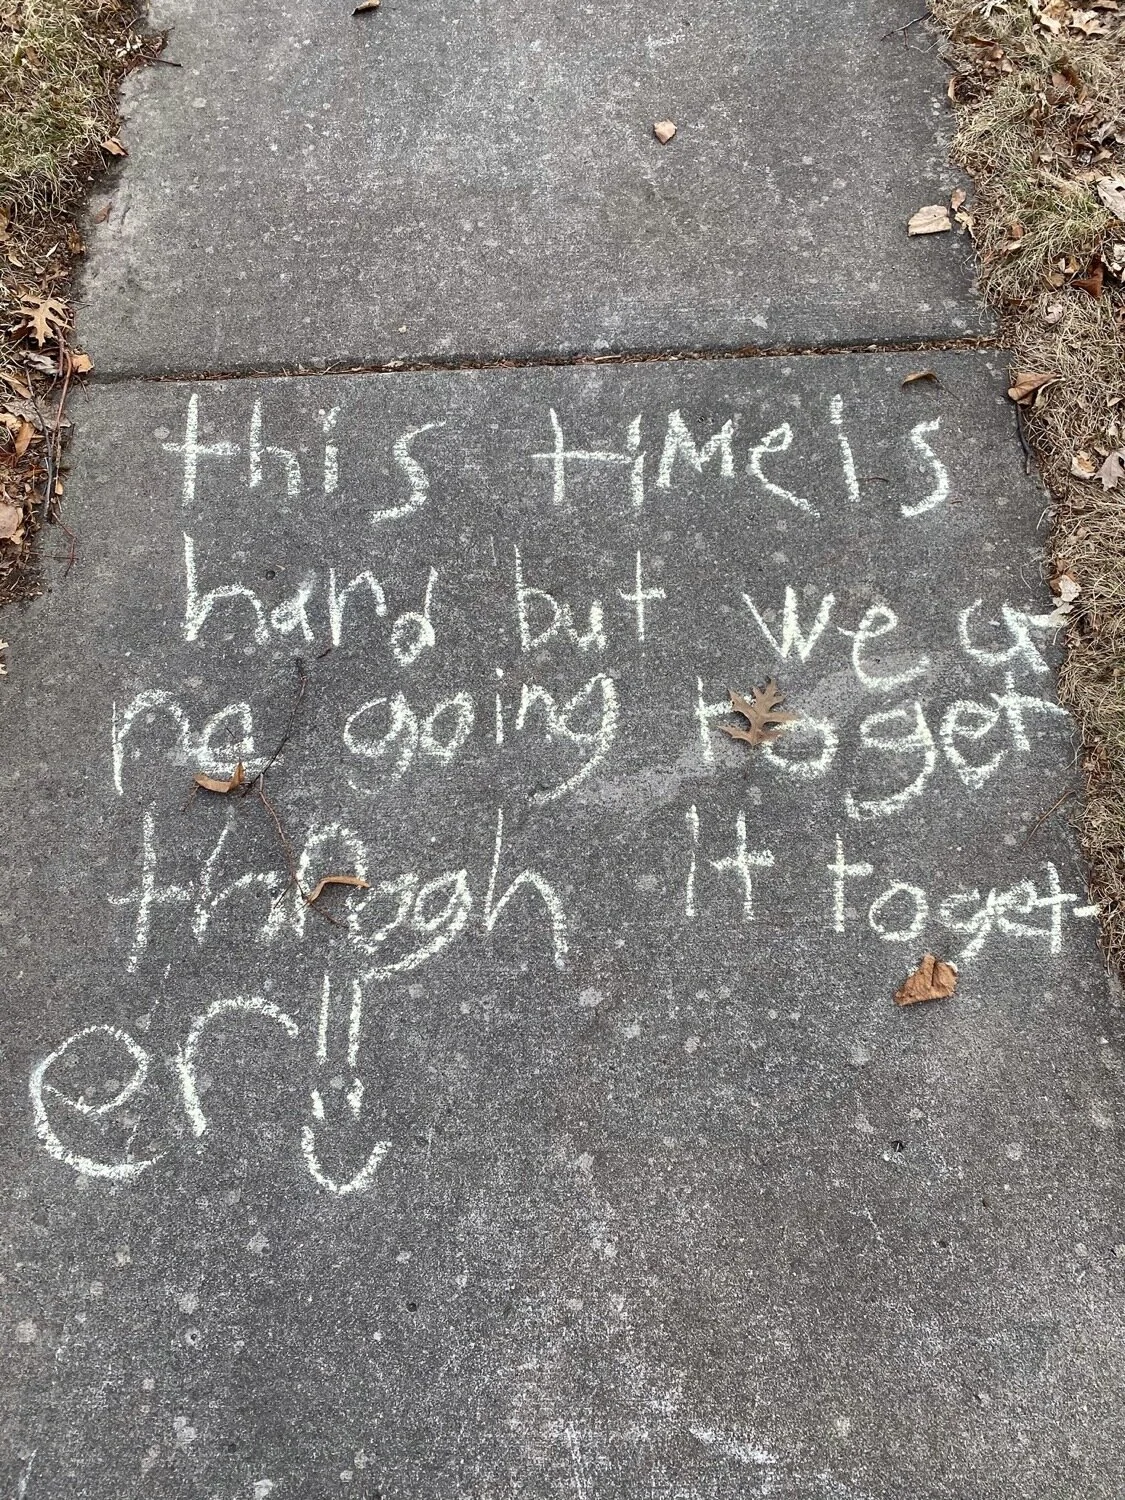 this tIMe is
hard but we ar
re going to get
throogh It toget
er!!